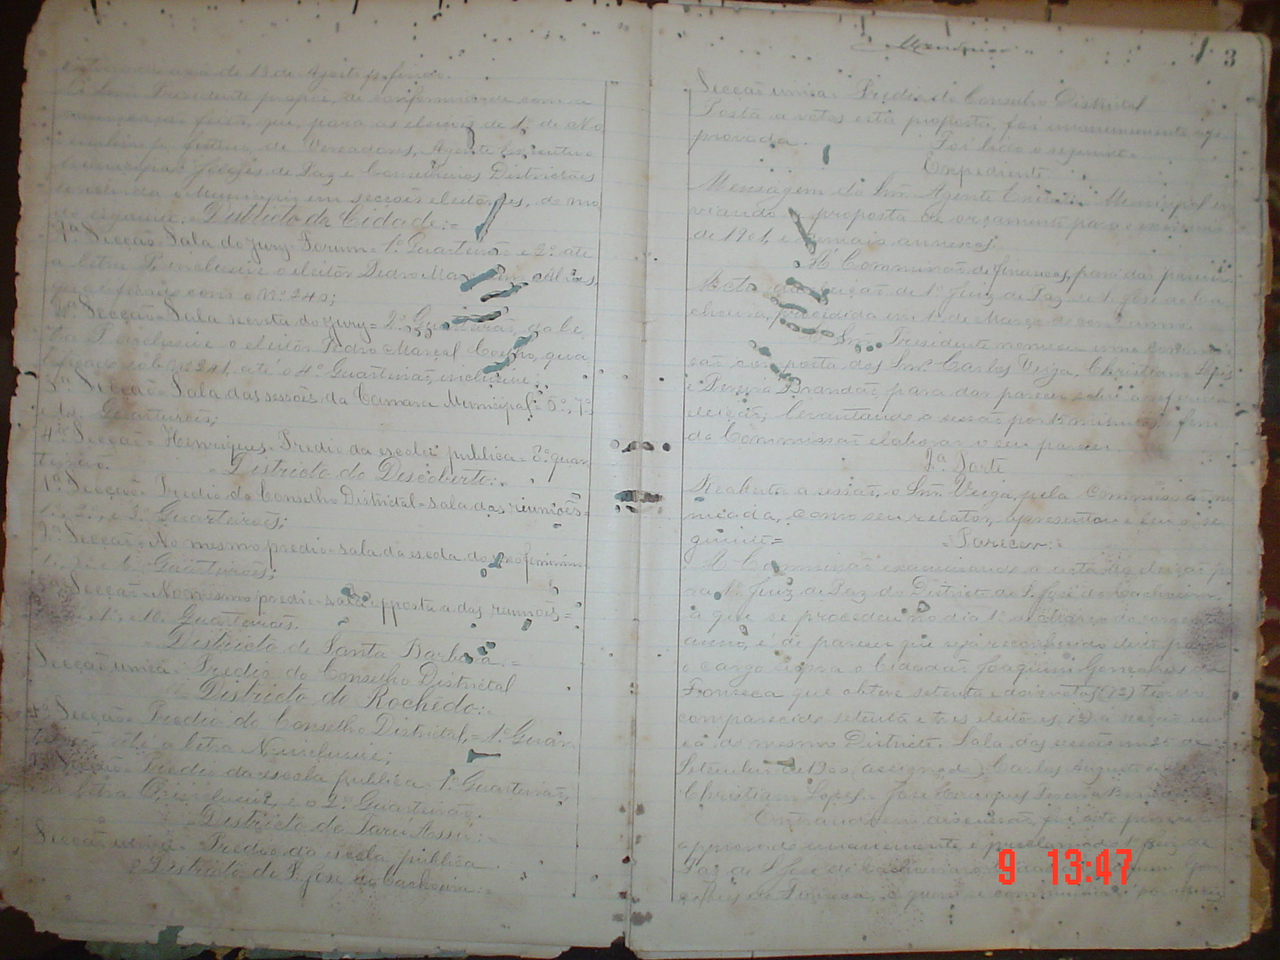 de 13 de Agosto p. findo.
O Snr. Presidente propoz, de conformidade com a
que, para as eleições de 1º de No
de Vereadores, Agente Executivo
Juizes de Paz e Conselheiros Districtaes
o Municipio em secções eleitoraes, do mo
do seguinte. Districto da Cidade:=
1ª Secção= Sala do Jury- Forum= 1º Quarteirão e 2º até
a letra P. inclusive o eleitor Pedro
com o Nº 240;
2ª Secção= Sala secreta do Jury= 2º Quarteirão, da le
tra P. inclusive o eleitor Pedro Marcal Coelho, qua
lificado sob nº 241, até o 4º Quarteirão, inclusive;
3ª Secção= Sala das sessões da Camara Municipal= 5º, 7º
Quarteirões;
4ª Secção= Henriques. Predio da escola publica= 3º quar
teirão.
Districto do Descoberto:
1ª Secção= Predio do Conselho Districtal= sala das reuniões=
1º, 2º, e 3º Quarteirões;
2ª Secção= No mesmo predio= sala da escola do sexo feminino
Quarteirões;
3ª Secção= No mesmo predio= sala opposta a das reuniões=
Quarteirões.
Districto de Santa Barbara.=
Secção unica= Predio do Conselho Districtal
Districto do Rochedo:
1ª Secção= Predio do Conselho Districtal,= 1º Quar
teirão até a letra N. inclusive;
Secção= Predio da escola publica= 1º Quarteirão,
letra e o 2º Quarteirão.
Districto do Tarú Assú:=
Secção unica= Predio da escola publica
Districto de S. José da Cachoeira:=
3
Secção unica= Predio do Conselho Districtal
Posta a votos esta proposta, foi unanimemente ap
provada. Foi lido o seguinte=
Expediente
Mensagem do Snr. Agente Executivo Municipal en
viando a proposta de orçamento para o exercicio
de 1901, e demais annexos.
A Commissão de finanças, para dar parecer.
Acta da eleição de 1º Juiz de Paz de S. José da Ca
choeira, procedida em 1º de Março do corrente anno.
O Snr. Presidente nomeou uma commis
são composta dos Snrs. Carlos Veiga, Christiam Lopes
e Pereira Brandão, para dar parecer sobre a referida
eleição; levantando a sessão por 15 minutos, a fim
da Commissão elaborar o seu parecer.
2ª Parte
Reaberta a sessão, o Snr. Veiga, pela Commissão no
meada, como seu relator, apresentou e leu o se
guinte= Parecer:
A Commissão examinando a acta da eleição p
ra 1º Juiz de Paz do Districto de S. José da Cachoeira
a que se procedeu no dia 1º de Março do corrente
anno, é de parecer que seja reconhecido eleito para
o cargo o Cidadão Joaquim Gonçalves da
Fonseca que obteve setenta e dois votos (72) tendo
comparecido setenta e tres eleitores (73) a secção uni
ca do mesmo Districto. Sala das sessões em 25 de
Setembro de 1900, assignado, Carlos Augusto
Christiam Lopes. José Henriques Pereira Brandão
Entrando em discussão, foi este parecer
approvado unanimemente e proclamado 1º Juiz de
Paz de S. José da Cachoeira o cidadão Joaquim Gon
çalves da Fonseca, a quem se
9 13:47